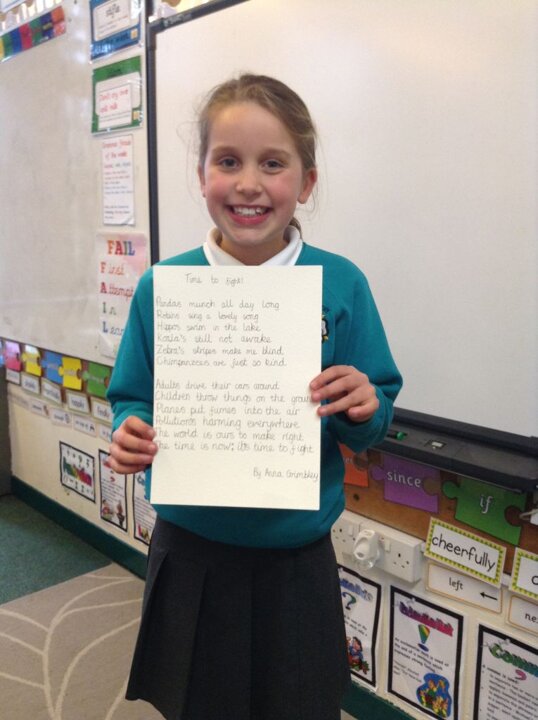 Don't my one
FAIL
First
Attempt
In
L
Time to fight!
Pandas munch all day long
Robins sing a lovely song
Hippos swim in the lake
Koala's still not awake
Zebra's stripes make me blind
Chimpanzees are just so kind
Adults drive their cars around
Children throw things on the ground
Planes put fumes into the air
Pollution's harming everywhere
The world is ours to make right
The time is now: its time to fight
By Anna Grimbley
since
if
cheerfully
left